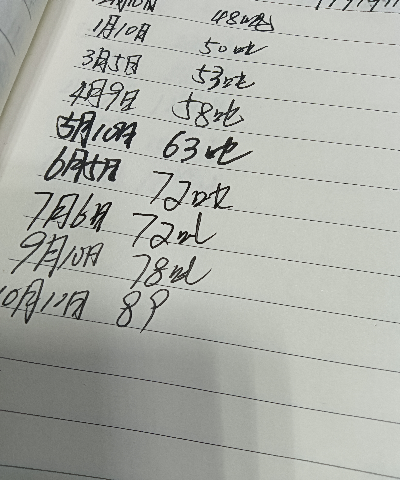 月10日 48吨
1月10日 50吨
3月5日 53吨
4月9日 58吨
5月10日 63吨
6月5日 72吨
7月6日 72吨
9月10日 78吨
10月12日 89